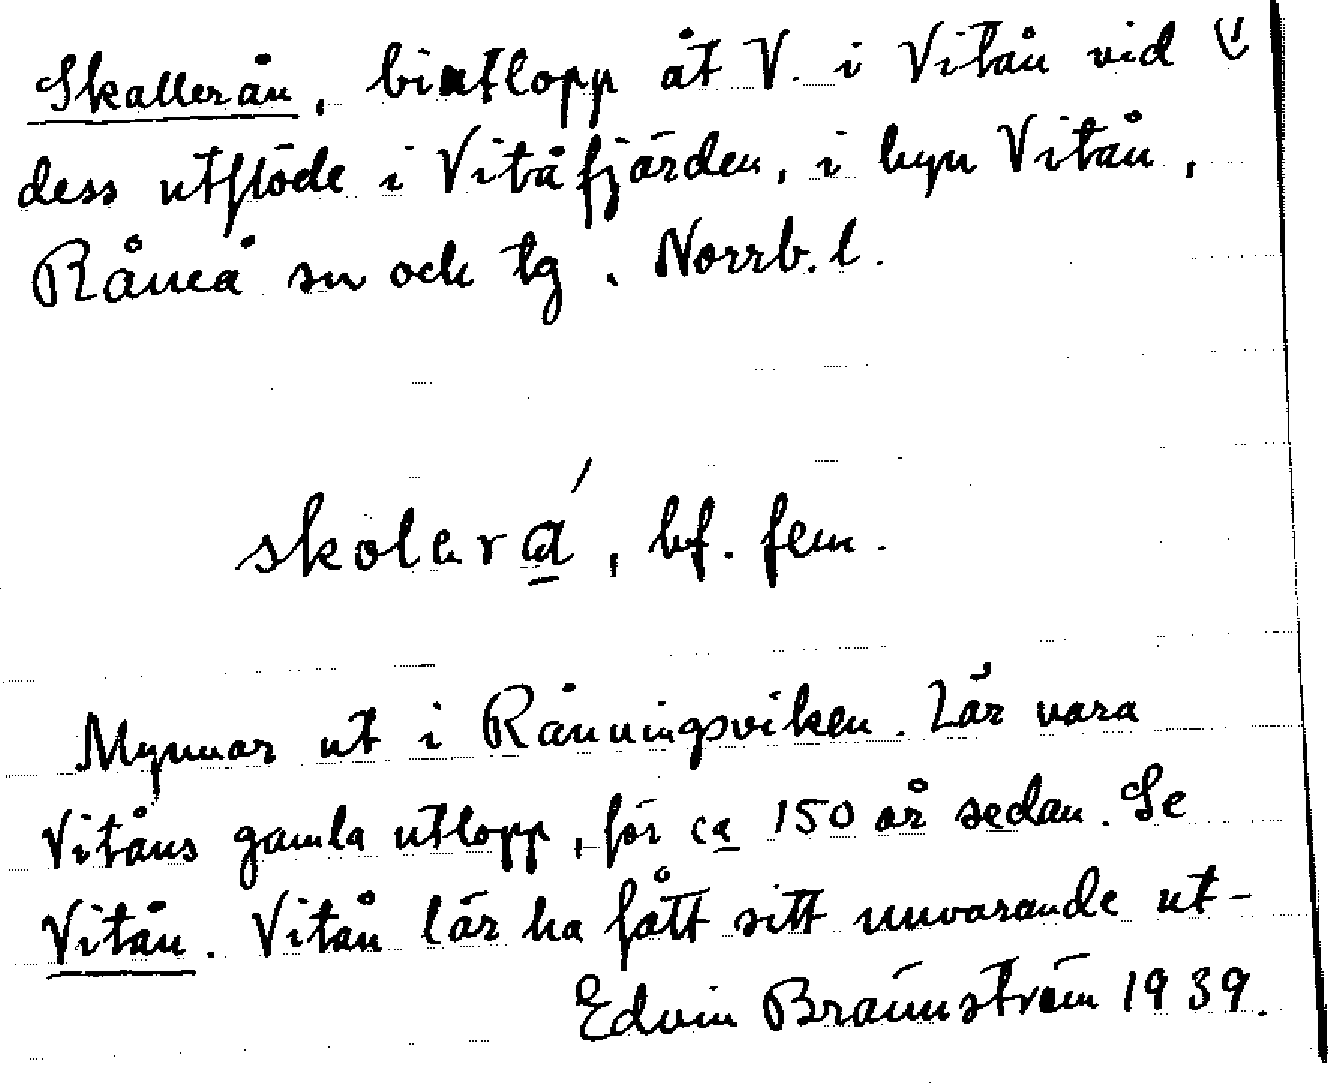 Skallerån, biutlopp åt V. i Vitån vid
dess utflöde i Vitåfjärden, i byn Vitån,
Råneå sn och tg. Norrb. l.
skolerá, bf. fem.
Mynnar ut i Rånningsviken. Lär vara
Vitåns gamla utlopp, för ca 150 år sedan. Se
Vitån. Vitån lär ha fått sitt nuvarande ut-
Edvin Brännström 1939.